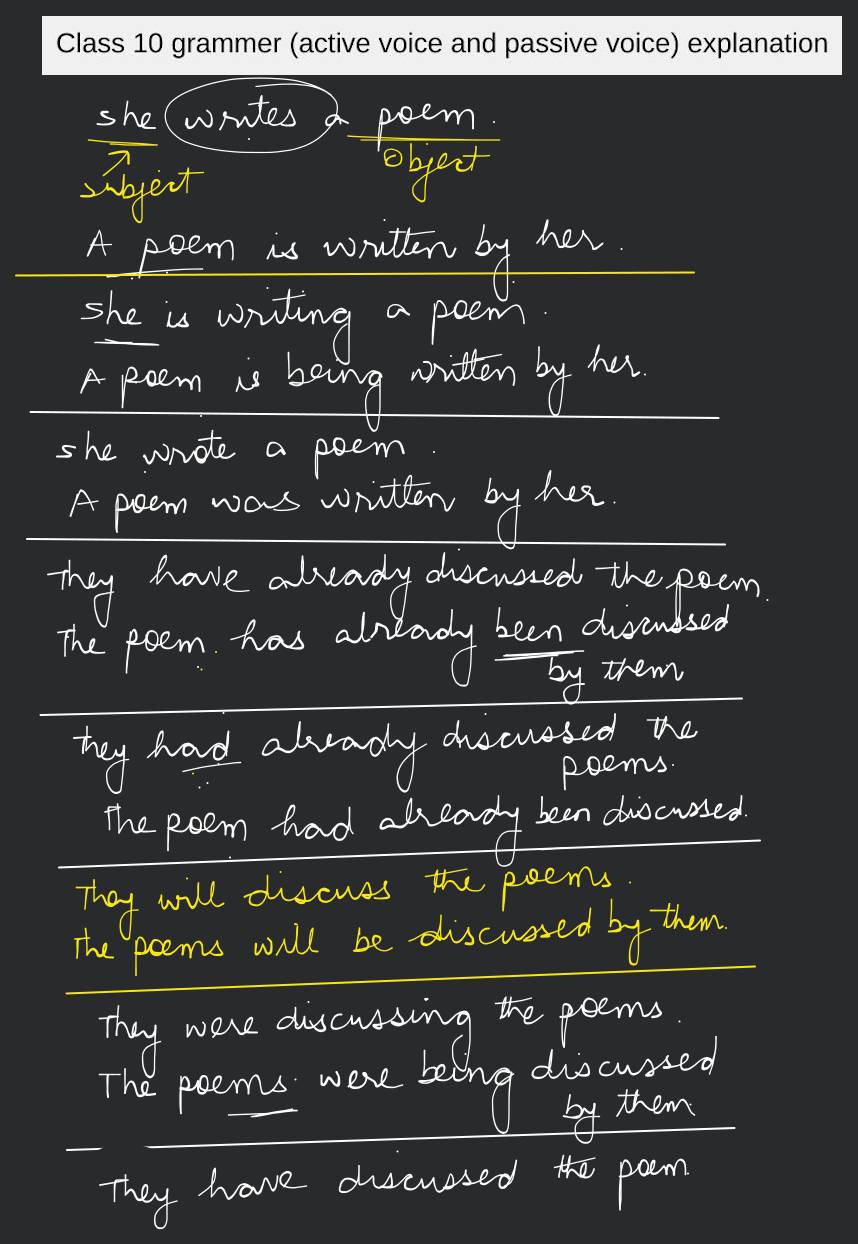 Class 10 grammer (active voice and passive voice) explanation
she writes a poem.
subject
object
A poem is written by her.
she is writing a poem.
A poem is being written by her.
she wrote a poem.
A poem was written by her.
They have already discussed the poem.
The poem has already been discussed
by them
They had already discussed the
poems.
The poem had already been discussed.
They will discuss the poems.
The poems will be discussed by them.
They were discussing the poems.
The poems were being discussed
by them
They have discussed the poem.